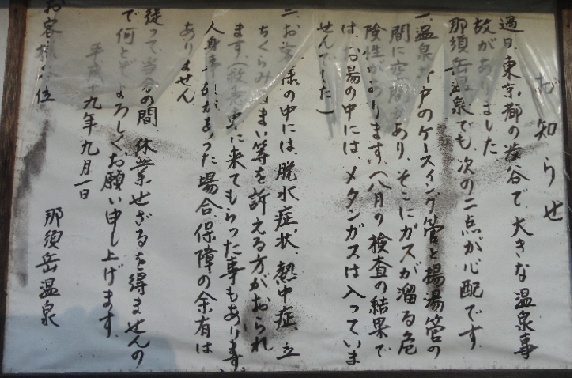 お知らせ
過日、東京都の渋谷で、大きな温泉事
故がありました。
那須岳温泉でも、次の二点が心配です。
一、温泉井戸のケースィング管と揚湯管の
間に空間があり、そこにガスが溜る危
険性があります。(八月の検査の結果で
は、お湯の中には、メタンガスは入っていま
せんでした)
二、お客様の中には脱水症状、熱中症、立
ちくらみ、めまい等を訴える方がおられ
ます。救急車に来てもらった事もあります。
人身事があった場合、保障の余有は
ありません
従って、当分の間、休業せざるを得ませんの
で何とぞよろしくお願い申し上げます。
平成十九年九月一日
那須岳温泉
お客様各位